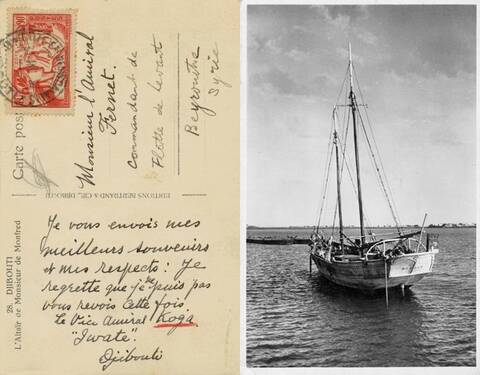 Monsieur l'Amiral
Fernet.
Commandant de
Flotte de Levant
Beyrouthe
Syrie
Carte pos
EDITIONS BERTRAND & CIE., DJIBOUTI
28. DJIBOUTI
L'Altaïr de Monsieur de Monfred
Je vous envois mes
meilleurs souvenirs
et mes respects: Je
regrette que je ne puis pas
vous revois cette fois.
Le Vice Amiral Koga
"Iwate".
Djibouti